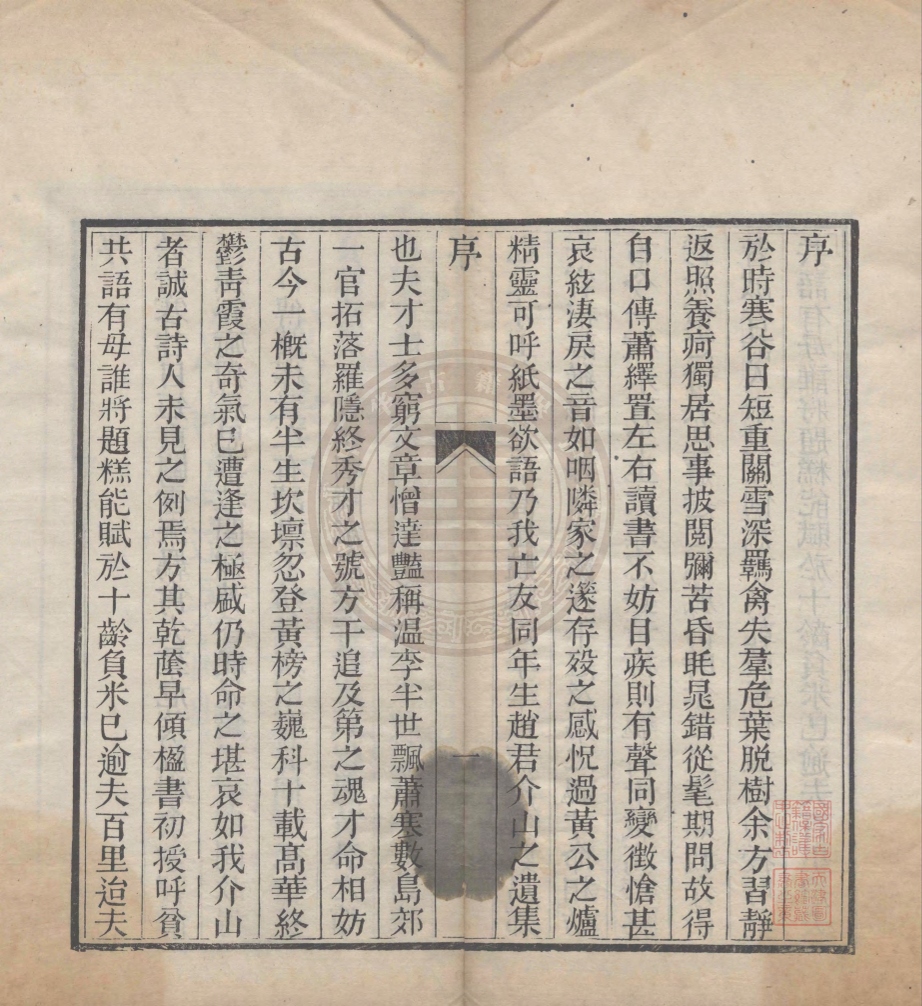 序
於時寒谷日短重關雪深羈禽失羣危葉脱樹余方習靜
返照養疴獨居思事披閱彌苦昏眊晁錯從髦期問故得
自口傳蕭繹置左右讀書不妨目疾則有聲同變徵愴甚
哀絃淒戾之音如咽隣家之邃存歿之感怳過黃公之爐
精靈可呼紙墨欲語乃我亡友同年生趙君介山之遺集
序
一
也夫才士多窮文章憎達豔稱温李半世飄蕭寒數島郊
一官拓落羅隱終秀才之號方干追及第之魂才命相妨
古今一概未有半生坎壈忽登黃榜之巍科十載髙華終
鬱青霞之奇氣已遭逢之極盛仍時命之堪哀如我介山
者誠古詩人未見之例焉方其乾蔭早傾楹書初授呼貧
共語有母誰將題糕能賦於十齡負米已逾夫百里迨夫